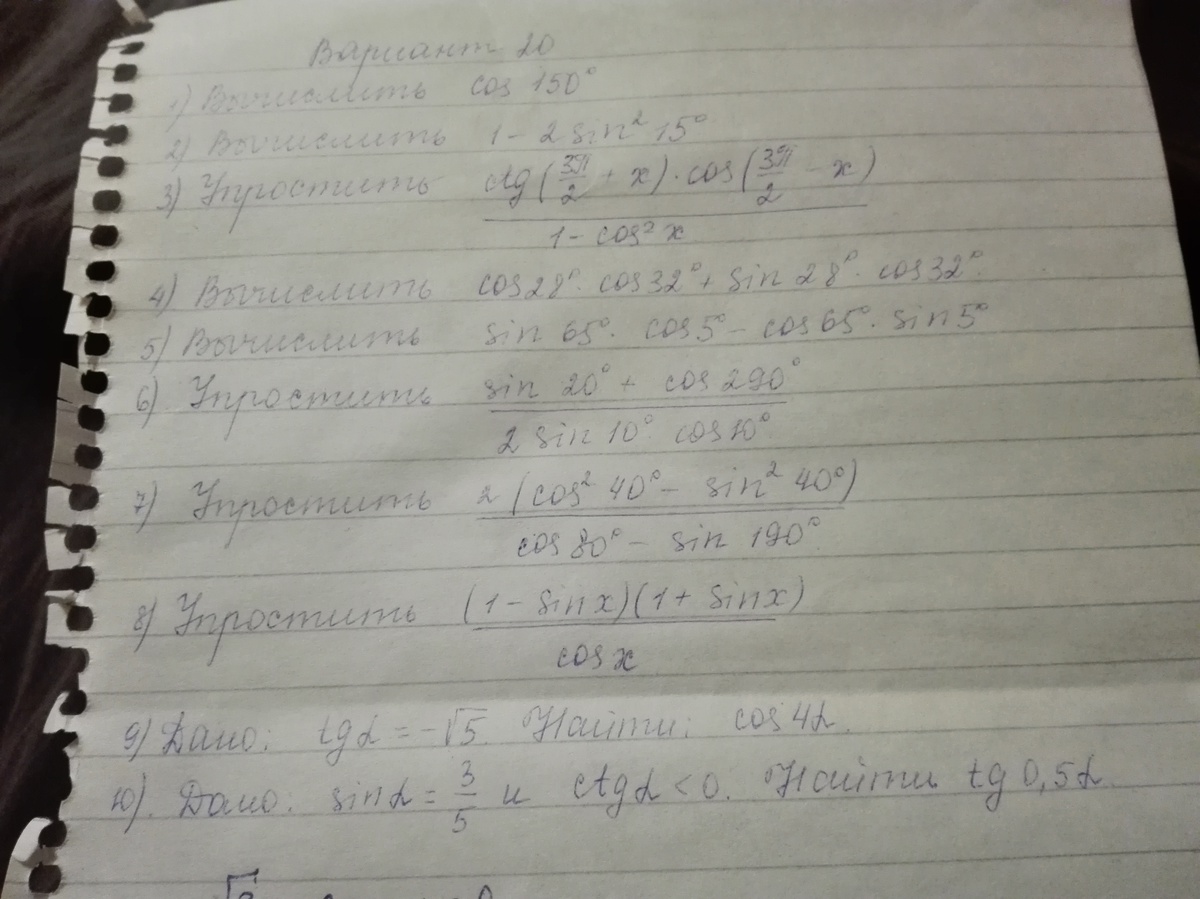 Вариант 20
1) Вычислить cos 150°
2) Вычислить 1 - 2 sin² 15°
3) Упростить ctg(3π/2 + x) · cos(3π/2 - x) / 1 - cos² x
4) Вычислить cos 28° · cos 32° + sin 28° · cos 32°.
5) Вычислить sin 65° · cos 5° - cos 65° · sin 5°
6) Упростить sin 20° + cos 290° / 2 sin 10° cos 10°
7) Упростить 2 (cos² 40° - sin² 40°) / cos 80° - sin 190°
8) Упростить (1 - sin x)(1 + sin x) / cos x
9) Дано: tg α = -√5. Найти: cos 4α.
10). Дано: sin α = 3/5 и ctg α < 0. Найти tg 0,5α